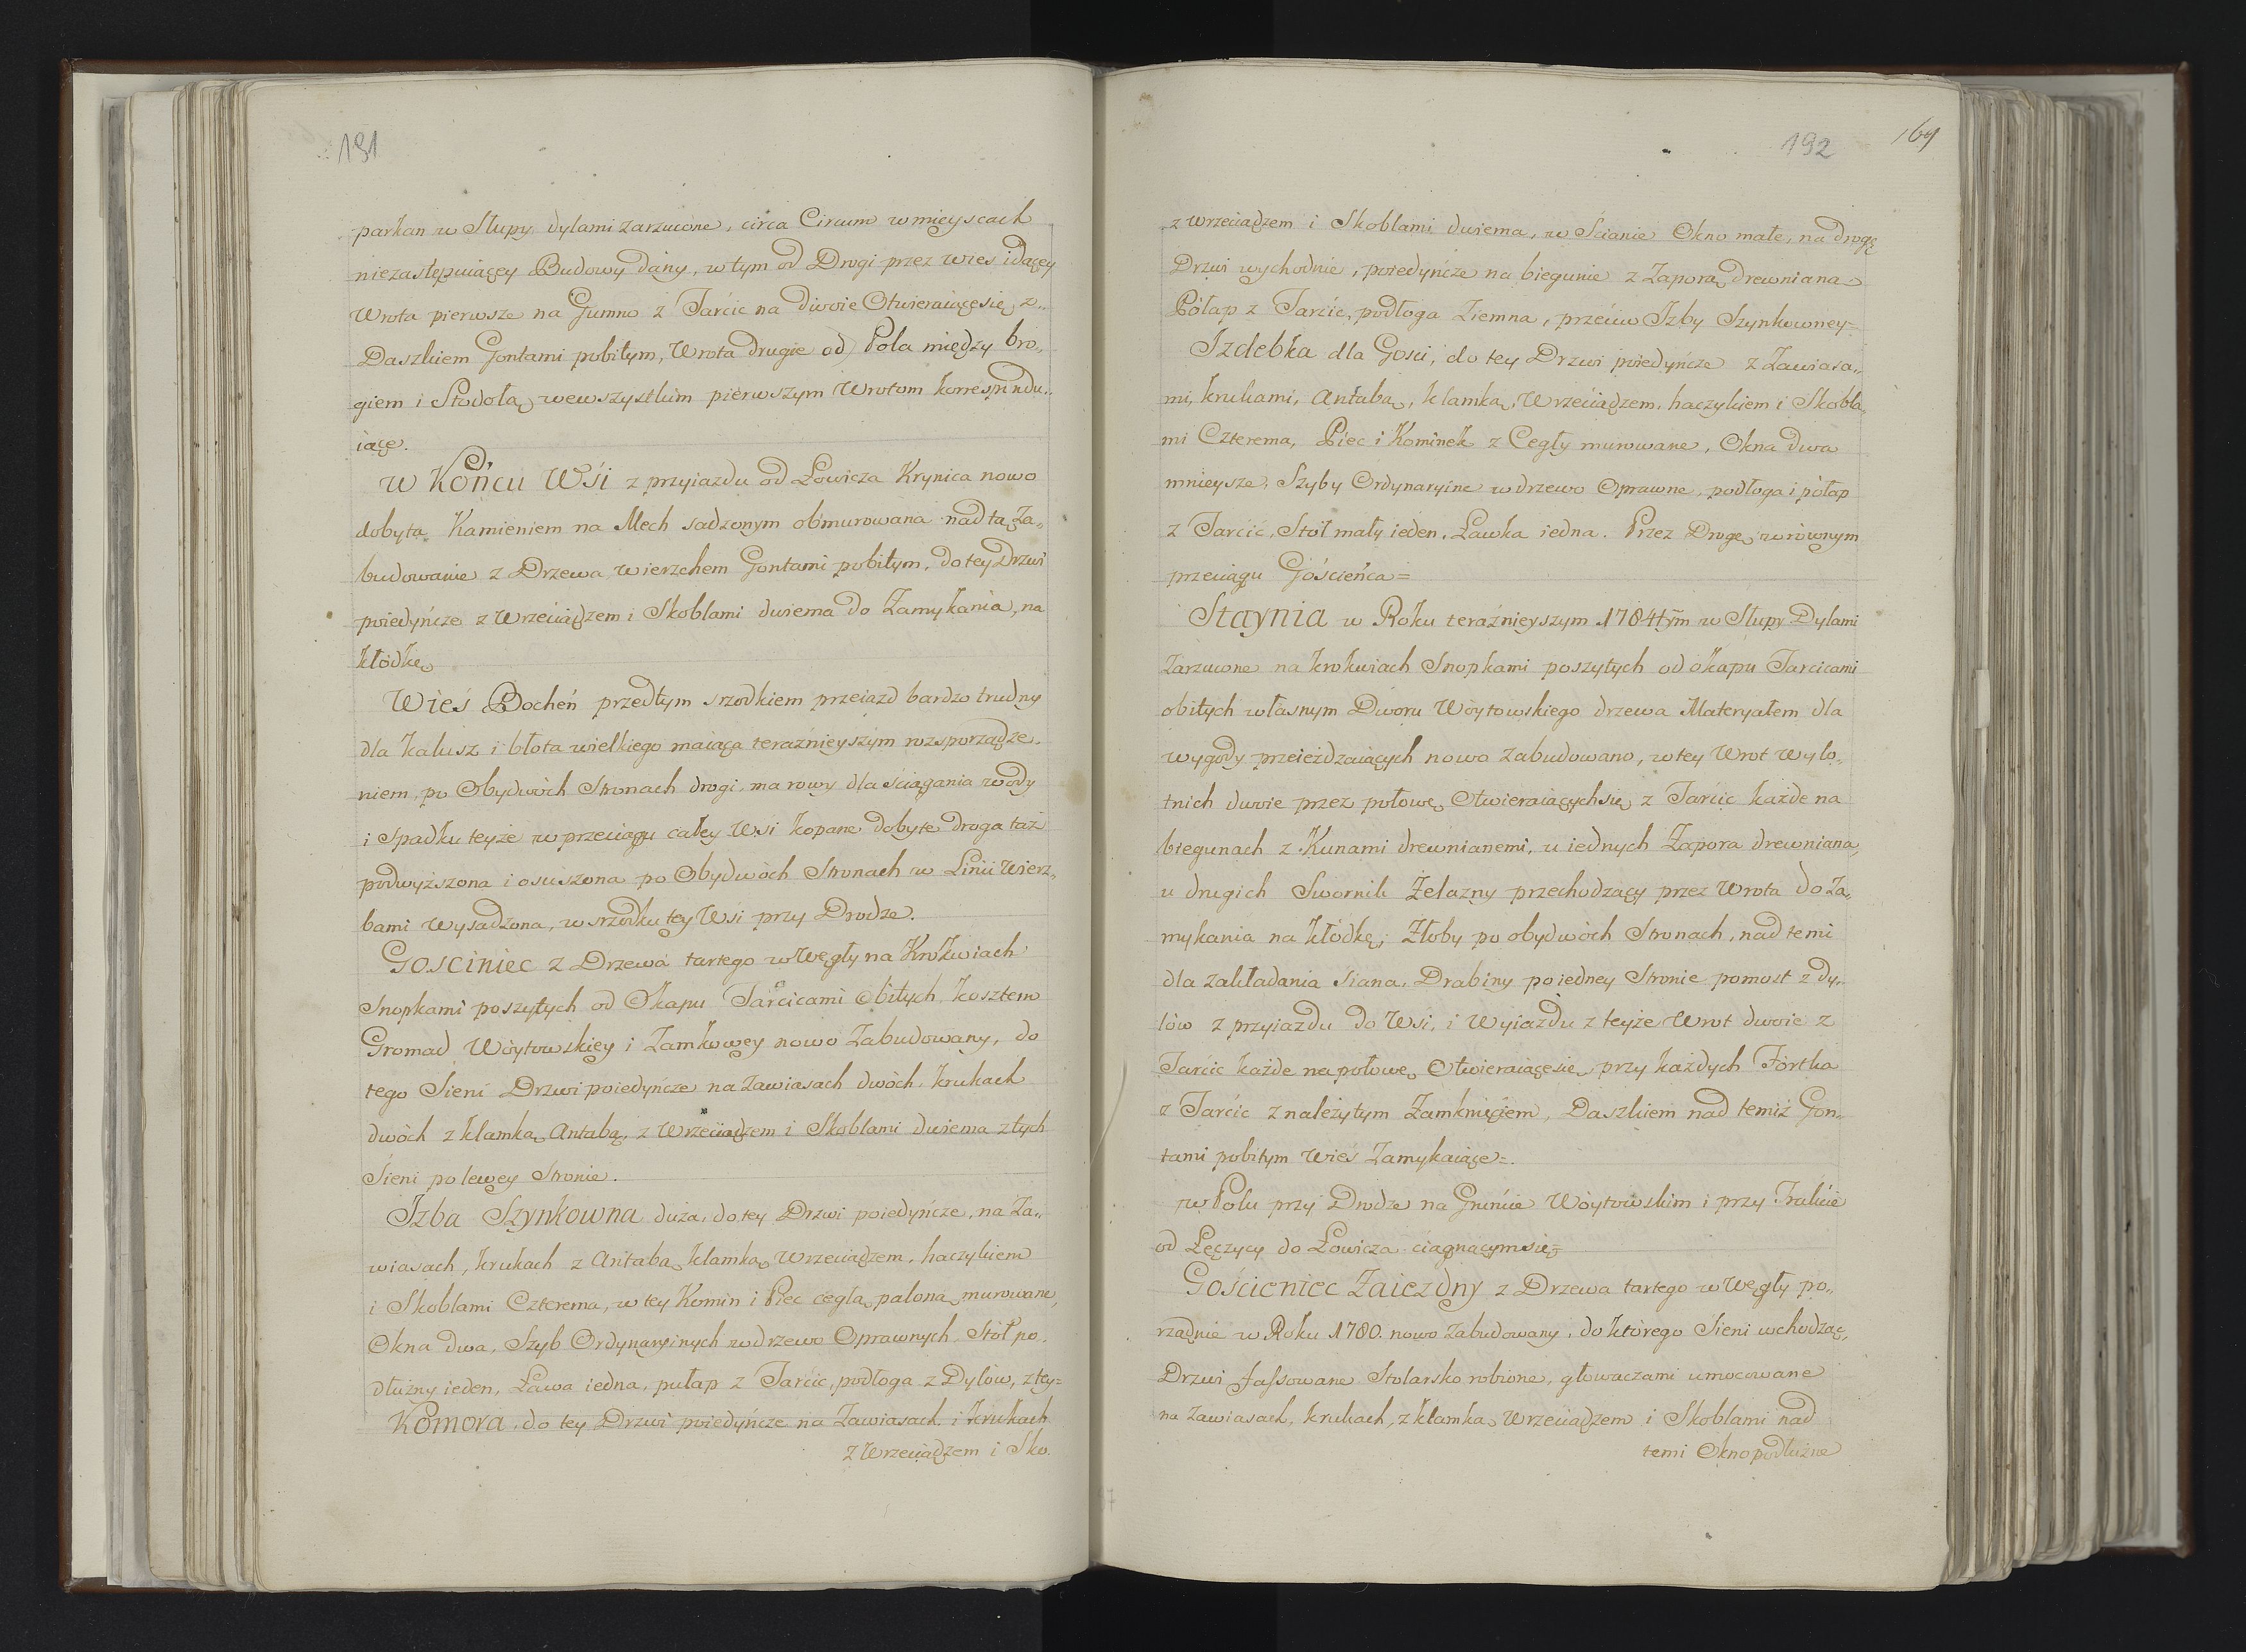 191
parkan w Słupy dylami zarzucone, circa Circum w mieyscach
niezastępuiącey Budowy dany, w tym od Drogi przez wies idącey
Wrota pierwsze na Gumno z Tarćic na dwoie Otwieraiące się z„
Daszkiem Gontami pobitym, Wrota drugie od Pola między bro„
giem i Stodołą we wszystkim pierwszym Wrotom korrespondu„
iące.
W Końcu Wśi z przyiazdu od Łowicza Krynica nowo
dobyta Kamieniem na Mech sadzonym obmurowana nad tą Za„
budowanie z Drzewa Wierzchem Gontami pobitym, do tey Drzwi
poiedyńcze z Wrzeciądzem i Skoblami dwiema do Zamykania, na
kłódkę
Wieś Bocheń przedtym srzodkiem przeiazd bardzo trudny
dla kałusz i błota wielkiego maiąca teraznieyszym rozsporządze„
niem, po Obydwóch Stronach drogi, ma rowy dla ściągania wody
i spadku teyże w przeciągu całey Wsi kopane dobyte droga taż
podwyższona i osuszona po Obydwóch Stronach w Linii Wierz„
bami wysadzona, w srzodku tey Wsi przy Drodze.
Gosciniec z Drzewa tartego w Węgły na Krokwiach
Snopkami poszytych od Okapu Tarcicami Obitych kosztem
Gromad Wòytowskiey i Zamkowey nowo Zabudowany, do
tego Sieni Drzwi poiedyńcze na Zawiasach dwóch, krukach
dwóch z klamką Antabą, z Wrzeciądzem i Skoblami dwiema z tych
Sieni po lewey Stronie.
Izba Szynkowna duża, do tey Drzwi poiedyńcze, na Za„
wiasach, krukach z Antabą klamką Wrzeciądzem, haczykiem
i Skoblami Czterema, w tey Komin i Piec cegłą paloną murowane,
Okna dwa, Szyb Ordynaryinych w drzewo Oprawnych Stół po„
dłużny ieden, Ława iedna, pułap z Tarćic, podłoga z Dylów, z tey=
Komora, do tey Drzwi poiedyńcze na Zawiasach i krukach
z Wrzeciądzem i Sko.
192
169
z Wrzeciądzem i Skoblami dwiema, w Ścianie Okno małe, na drogę
Drzwi wychodnie, poiedyńcze na biegunie z Zaporą drewniana
Półap z Tarćic, podłoga Ziemna, przeciw Izby Szynkowney=
Izdebka dla Gosci, do tey Drzwi poiedyńcze z Zawiasa„
mi, krukami, Antabą, klamką, Wrzeciądzem, haczykiem i Skobla„
mi Czterema, Piec i Kominek z Cegły murowane, Okna dwa
mnieysze, Szyby Ordynaryine w drzewo Oprawne, podłoga i półap
z Tarćic, Stół mały ieden, Ławka iedna. Przez Drogę w równym
przeciągu Góścieńca=
Staynia w Roku teraźnieyszym 1784tym w Słupy Dylami
Zarzucone na krokwiach Snopkami poszytych od okapu Tarcicami
obitych własnym Dworu Wòytowskiego drzewa Materyałem dla
wygody przeieżdzaiących nowo zabudowano, w tey Wrot Wylo„
tnich dwoie przez połowę Otwieraiących się z Tarćic każde na
biegunach z Kunami drewnianemi, u iednych Zapora drewniana,
u drugich Swornik Żelazny przechodzący przez Wrota do Za„
mykania na kłódkę; Żłoby po obydwóch Stronach, nad temi
dla zakładania Siana, Drabiny po iedney Stronie pomost z dy„
lów z przyiazdu do Wsi, i Wyiazdu z teyże Wrot dwoie z
Tarćic każde na połowę Otwieraiące się przy każdych Fórtka
z Tarćic z należytym Zamknięciem, Daszkiem nad temiż Gon„
tami pobitym Wieś Zamykaiące=.
w Polu przy Drodze na Grunćie Wòytowskim i przy Trakcie
od Łęczycy do Łowicza ciągnącym się=
Gościeniec Zaiezdny z Drzewa tartego w Węgły po„
rządnie w Roku 1780. nowo Zabudowany, do którego Sieni wchodząc,
Drzwi fassowane Stolarsko robione, głowaczami umocowane
na Zawiasach, krukach, z klamką Wrzeciądzem i Skoblami nad
temi Okno podłużne